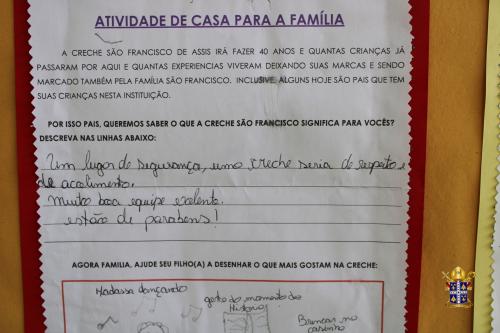 ATIVIDADE DE CASA PARA A FAMÍLIA
A CRECHE SÃO FRANCISCO DE ASSIS IRÁ FAZER 40 ANOS E QUANTAS CRIANÇAS JÁ
PASSARAM POR AQUI E QUANTAS EXPERIENCIAS VIVERAM DEIXANDO SUAS MARCAS E SENDO
MARCADO TAMBÉM PELA FAMÍLIA SÃO FRANCISCO. INCLUSIVE ALGUNS HOJE SÃO PAIS QUE TEM
SUAS CRIANÇAS NESTA INSTITUIÇÃO.
POR ISSO PAIS, QUEREMOS SABER O QUE A CRECHE SÃO FRANCISCO SIGNIFICA PARA VOCÊS?
DESCREVA NAS LINHAS ABAIXO:
Um lugar de segurança, uma creche seria de respeito e
de acolimento.
Muito boa equipe exelente.
estão de parabens!
AGORA FAMILIA, AJUDE SEU FILHO(A) A DESENHAR O QUE MAIS GOSTAM NA CRECHE:
Hadassa dançando
gosto do momento da
Historia
Brincar no